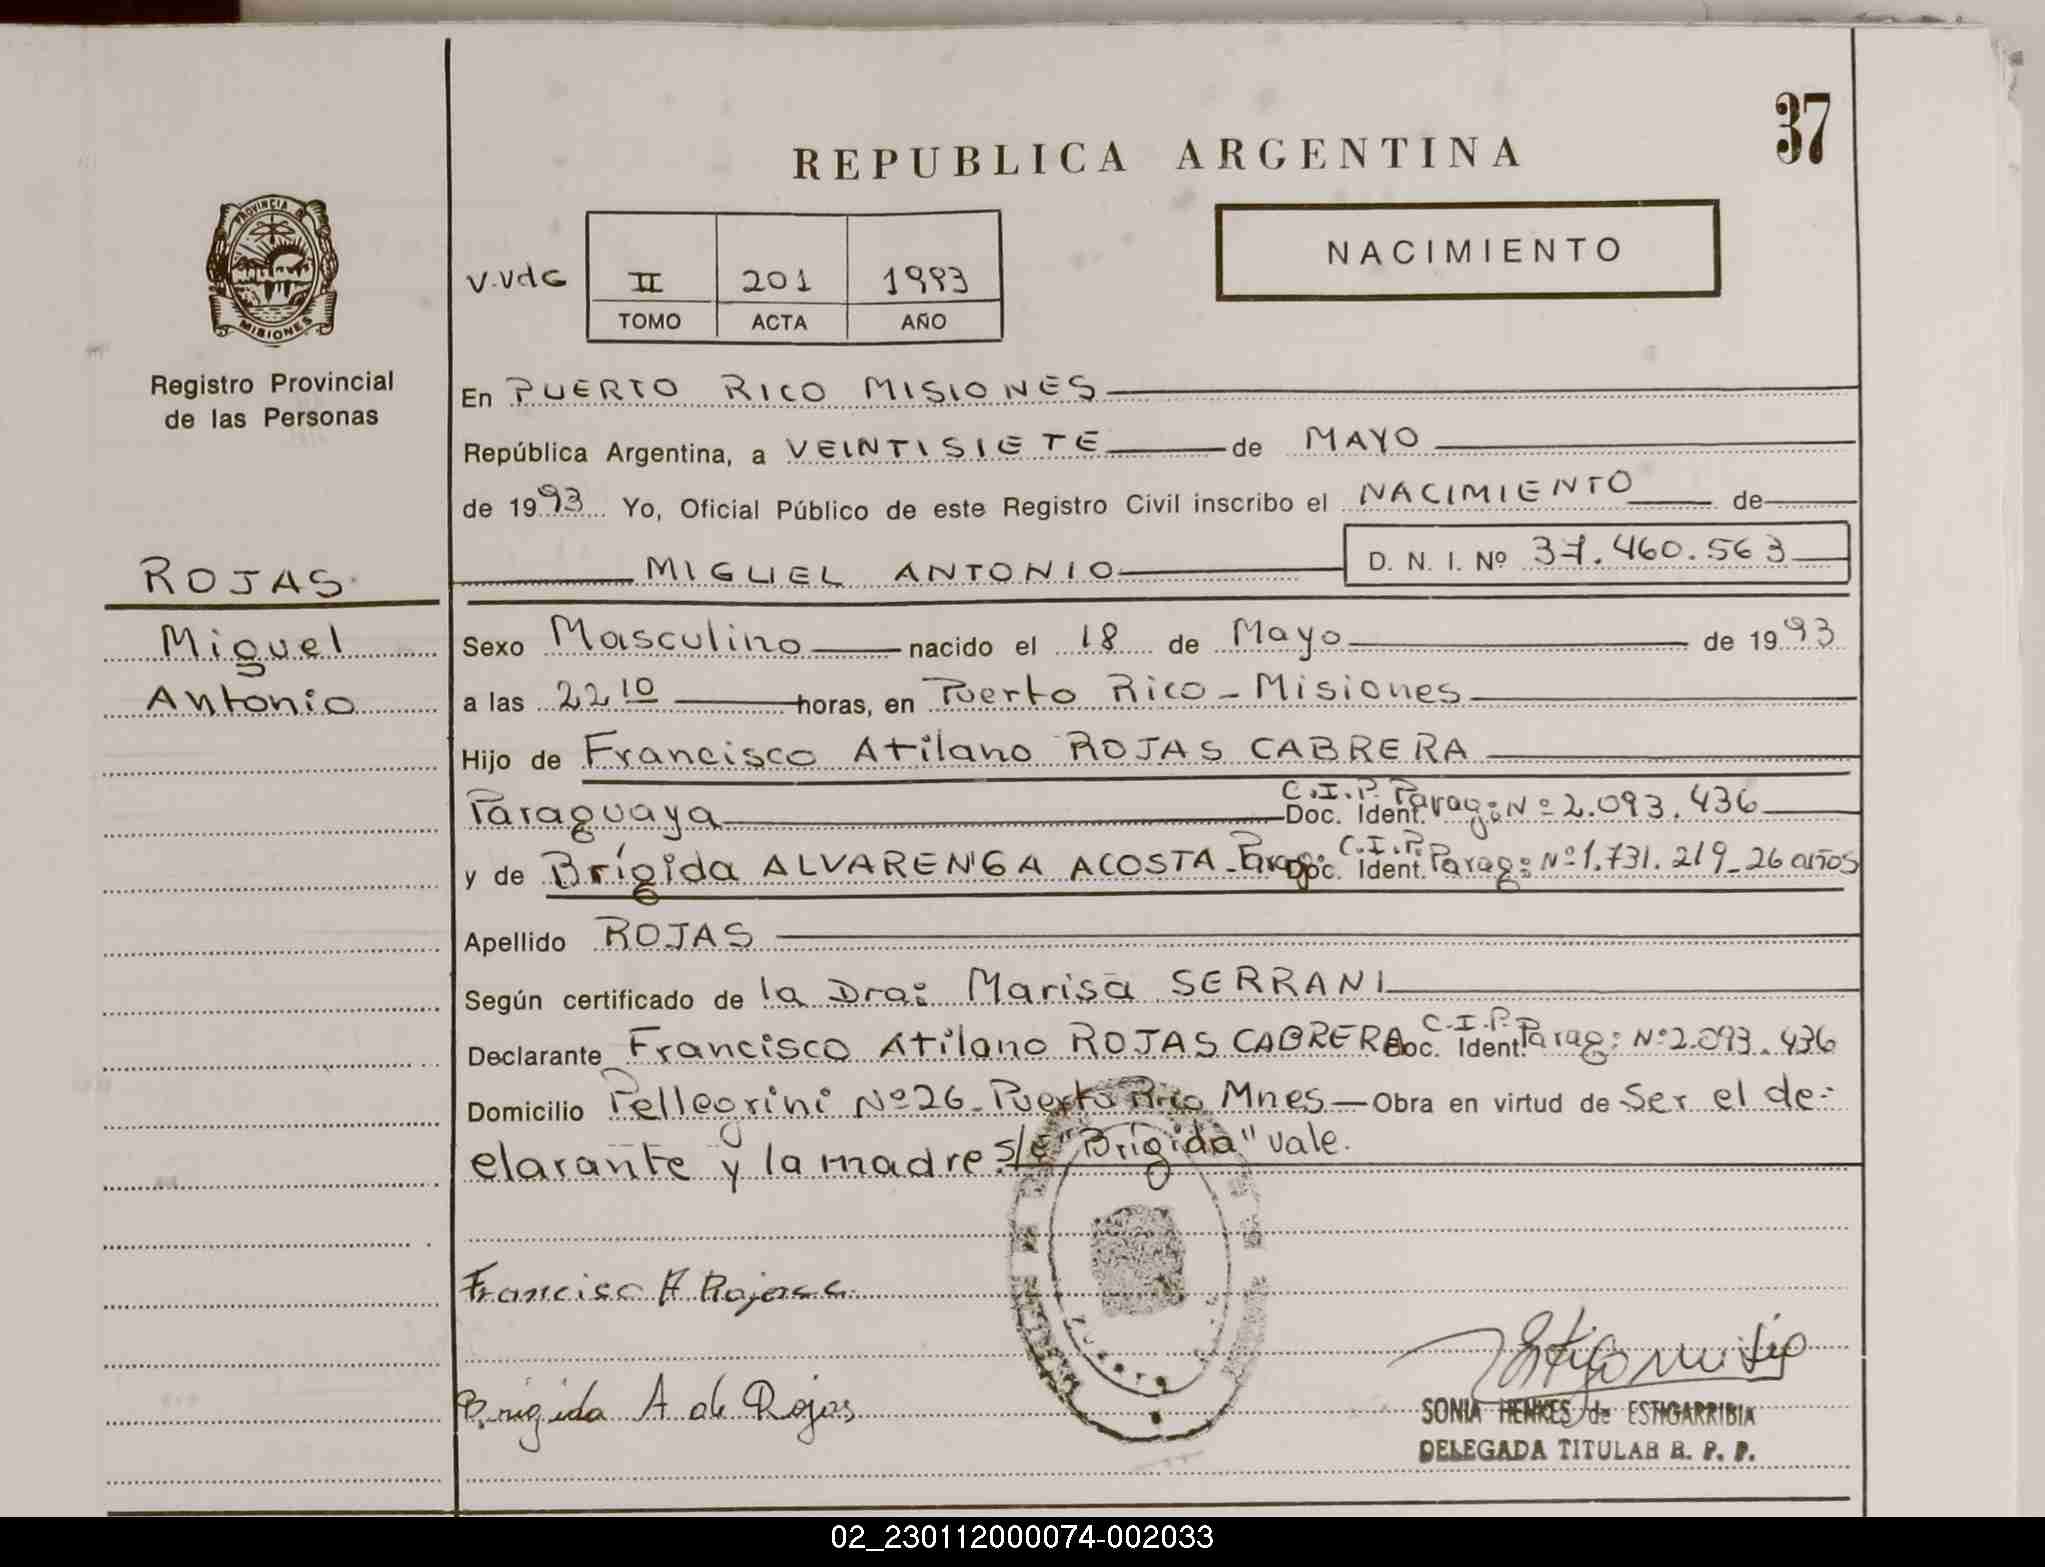 37
REPUBLICA ARGENTINA
PROVINCIA DE
MISIONES
Registro Provincial
de las Personas
NACIMIENTO
V.VdG II 201 1993
TOMO ACTA AÑO
En PUERTO RICO MISIONES
República Argentina, a VEINTISIETE de MAYO
de 1993 Yo, Oficial Público de este Registro Civil inscribo el NACIMIENTO de
MIGUEL ANTONIO D. N. I. Nº 37.460.563
ROJAS
Miguel
Antonio
Sexo Masculino nacido el 18 de Mayo de 1993
a las 22 10 horas, en Puerto Rico - Misiones
Hijo de Francisco Atilano ROJAS CABRERA
Paraguaya Doc. Ident. C.I.P. Parag: Nº 2.093.436
y de Brígida ALVARENGA ACOSTA - Parag: Doc. Ident. C.I.P. Parag: Nº 1.731.219 - 26 años
Apellido ROJAS
Según certificado de la Dra: Marisa SERRANI
Declarante Francisco Atilano ROJAS CABRERA Doc. Ident. C.I.P. Parag: Nº 2.093.436
Domicilio Pellegrini Nº 26 - Puerto Rico Mnes - Obra en virtud de Ser el de-
clarante y la madre. s/e "Brígida" vale.
Francisco A Rojas C.
Brigida A de Rojas
SONIA HENKES de ESTIGARRIBIA
DELEGADA TITULAR R. P. P.
02_230112000074-002033